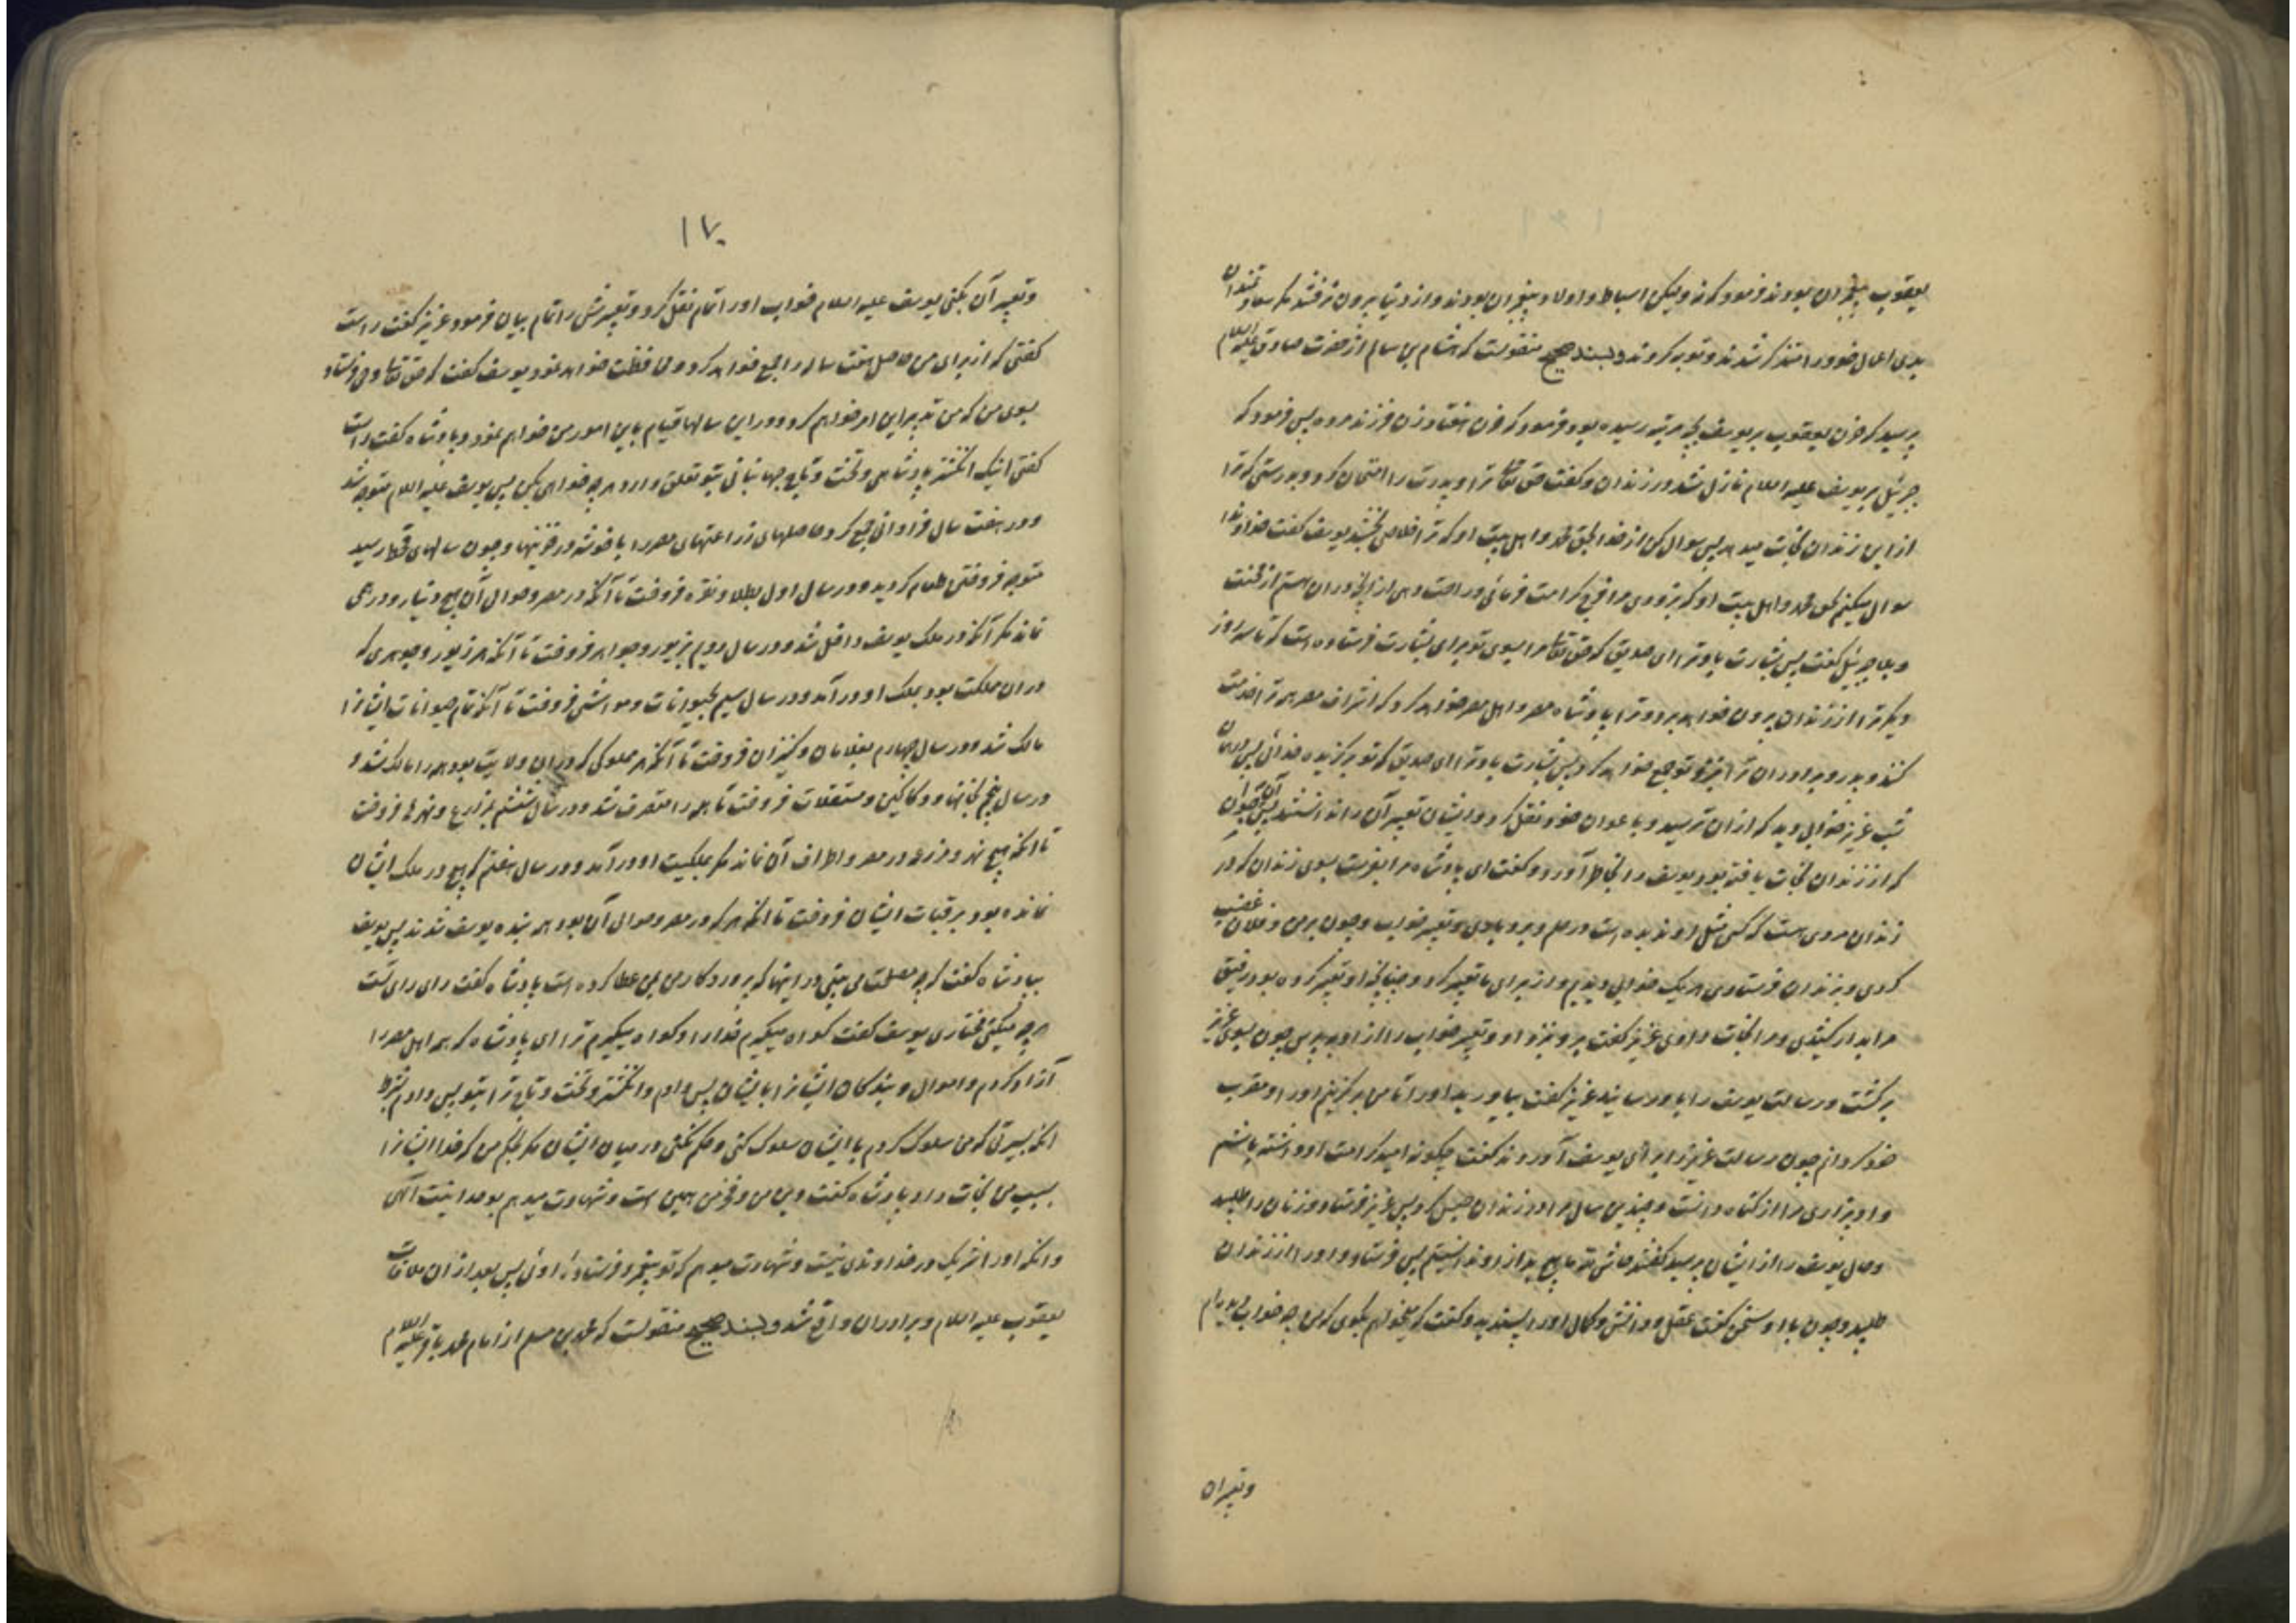 یعقوب پیغمبران بودند فرمود که نه ولیکن اسباط و اولاد پیغمبران بودند و از دنیا بیرون نرفتند مگر سعادتمندان
بدی اعمال خود را متذکر شدند و توبه کردند و بسند صحیح منقولست که هشام بن سالم از حضرت صادق علیه السلام
پرسید که حزن یعقوب بر یوسف بچه مرتبه رسیده بود فرمود که حزن هفتاد زن فرزند مرده پس فرمود که
جبرئیل بر یوسف علیه السلام نازل شد در زندان و گفت حق تعالی ترا و پدرت را امتحان کرد و بدرستی که ترا
از این زندان نجات میدهد پس سوال کن از خدا بحق محمد و اهل بیت او که ترا خلاصی بخشد یوسف گفت خداوندا
سوال میکنم بحق محمد و اهل بیت او که بزودی مرا فرج کرامت فرمائی و راحت دهی از آنچه در آن هستم از محنت
و بلا جبرئیل گفت پس بشارت باد ترا ای صدیق که حق تعالی مرا بسوی تو برای بشارت فرستاده است که تا سه روز
دیگر ترا از زندان بیرون خواهد برد و ترا پادشاه مصر و اهل مصر خواهد کرد که اشراف مصر همه ترا خدمت
کنند و پدر و برادران ترا بنزد تو جمع خواهد کرد پس بشارت باد ترا ای صدیق که تو برگزیده خدائی پس در همان
شب عزیز خوابی دید که از آن ترسید و با اعوان خود نقل کرد و ایشان تعبیر آن را ندانستند پس آن جوان
که از زندان نجات یافته بود یوسف را بخاطر آورد و گفت ای پادشاه مرا بفرست بسوی زندان که در
زندان مردی هست که کسی مثل او ندیده است در علم و بردباری و تعبیر خواب و چون بر من و فلان غضب
کردی و بزندان فرستادی هر یک خوابی دیدیم و از برای ما تعبیر کرد و چنانچه او تعبیر کرده بود رفیق
مرا بدار کشیدی و مرا نجات دادی عزیز گفت برو بنزد او و تعبیر خواب را از او بپرس چون بسوی عزیز
برگشت و رسالت یوسف را باو رسانید عزیز گفت بیاورید او را تا من برگزینم او را و مقرب
خود گردانم چون رسالت عزیز را برای یوسف آوردند گفت چگونه امید کرامت او داشته باشم
و او بیزاری مرا از گناه دانست و چندین سال مرا در زندان حبس کرد پس عزیز فرستاد و زنان را طلبید
و حال یوسف را از ایشان پرسید گفتند حاش لله ما هیچ بد از او ندانستیم پس فرستاد و او را از زندان
طلبید و چون با او سخن گفت عقل و دانش و کمال او را پسندید و گفت که میخواهم بگوی که من چه خواب دیده‌ام
و تعبیر آن
۱۷۰
و تعبیر آن بکنی یوسف علیه السلام خواب او را تمام نقل کرد و تعبیرش را تمام بیان فرمود عزیز گفت راست
گفتی که از برای من حاصل هفت ساله را جمع خواهد کرد و محافظت خواهد نمود یوسف گفت که حق تعالی وحی فرستاد
بسوی من که من تدبیر این امر خواهم کرد و در این سالها قیام باین امور من خواهم نمود پادشاه گفت راست
گفتی اینک انگشتر پادشاهی و تخت و تاج جهانبانی بتو تعلق دارد هر چه خواهی بکن پس یوسف علیه السلام متوجه شد
و در هفت سال فراوانی جمع کرد حاصلهای زراعتهای مصر را با خوشه در خزینها و چون سالهای قحط رسید
متوجه فروختن طعام گردید و در سال اول بطلا و نقره فروخت تا آنکه در مصر و حوالی آن هیچ دینار و درهمی
نماند مگر آنکه در ملک یوسف داخل شد و در سال دویم بزیور و جواهر فروخت تا آنکه هر زیور و جوهری که
در ان مملکت بود بملک او در آمد و در سال سیم بحیوانات و مواشی فروخت تا آنکه تمام حیوانات ایشانرا
مالک شد و در سال چهارم بغلامان و کنیزان فروخت تا آنکه هر مملوکی که در این ولایت بود همه را مالک شد و
در سال پنجم بخانها و دکاکین و مستغلات فروخت تا همه را متصرف شد و در سال ششم بمزارع و نهرها فروخت
تا آنکه هیچ نهر و مزرعه در مصر و اطراف آن نماند مگر بملکیت او در آمد و در سال هفتم که هیچ در ملک ایشان
نمانده بود برقبات ایشان فروخت تا آنکه هر که در مصر و حوالی آن بود همه بنده یوسف شدند پس یوسف
بپادشاه گفت که چه مصلحت می بینی در اینها که پروردگار من بمن عطا کرده است پادشاه گفت رای رای تست
هر چه میکنی مختاری یوسف گفت گواه میگیرم خدا را و گواه میگیرم ترا ای پادشاه که همه اهل مصر را
آزاد کردم و اموال و بندگان ایشانرا بایشان پس دادم و انگشتر و تخت و تاج ترا بتو پس دادم بشرط
آنکه بسیرتی که من سلوک کردم با ایشان سلوک کنی و حکم نکنی در میان ایشان مگر بحکم من که خدا ایشانرا
بسبب من نجات داد پادشاه گفت دین من و فخر من همین است و شهادت میدهم بوحدانیت الهی
و آنکه او را شریک در خداوندی نیست و شهادت میدهم که تو پیغمبر و فرستاده اوئی پس بعد از آن ملاقات
یعقوب علیه السلام و برادران واقع شد و بسند صحیح منقولست که محمد بن مسلم از امام محمد باقر علیه السلام